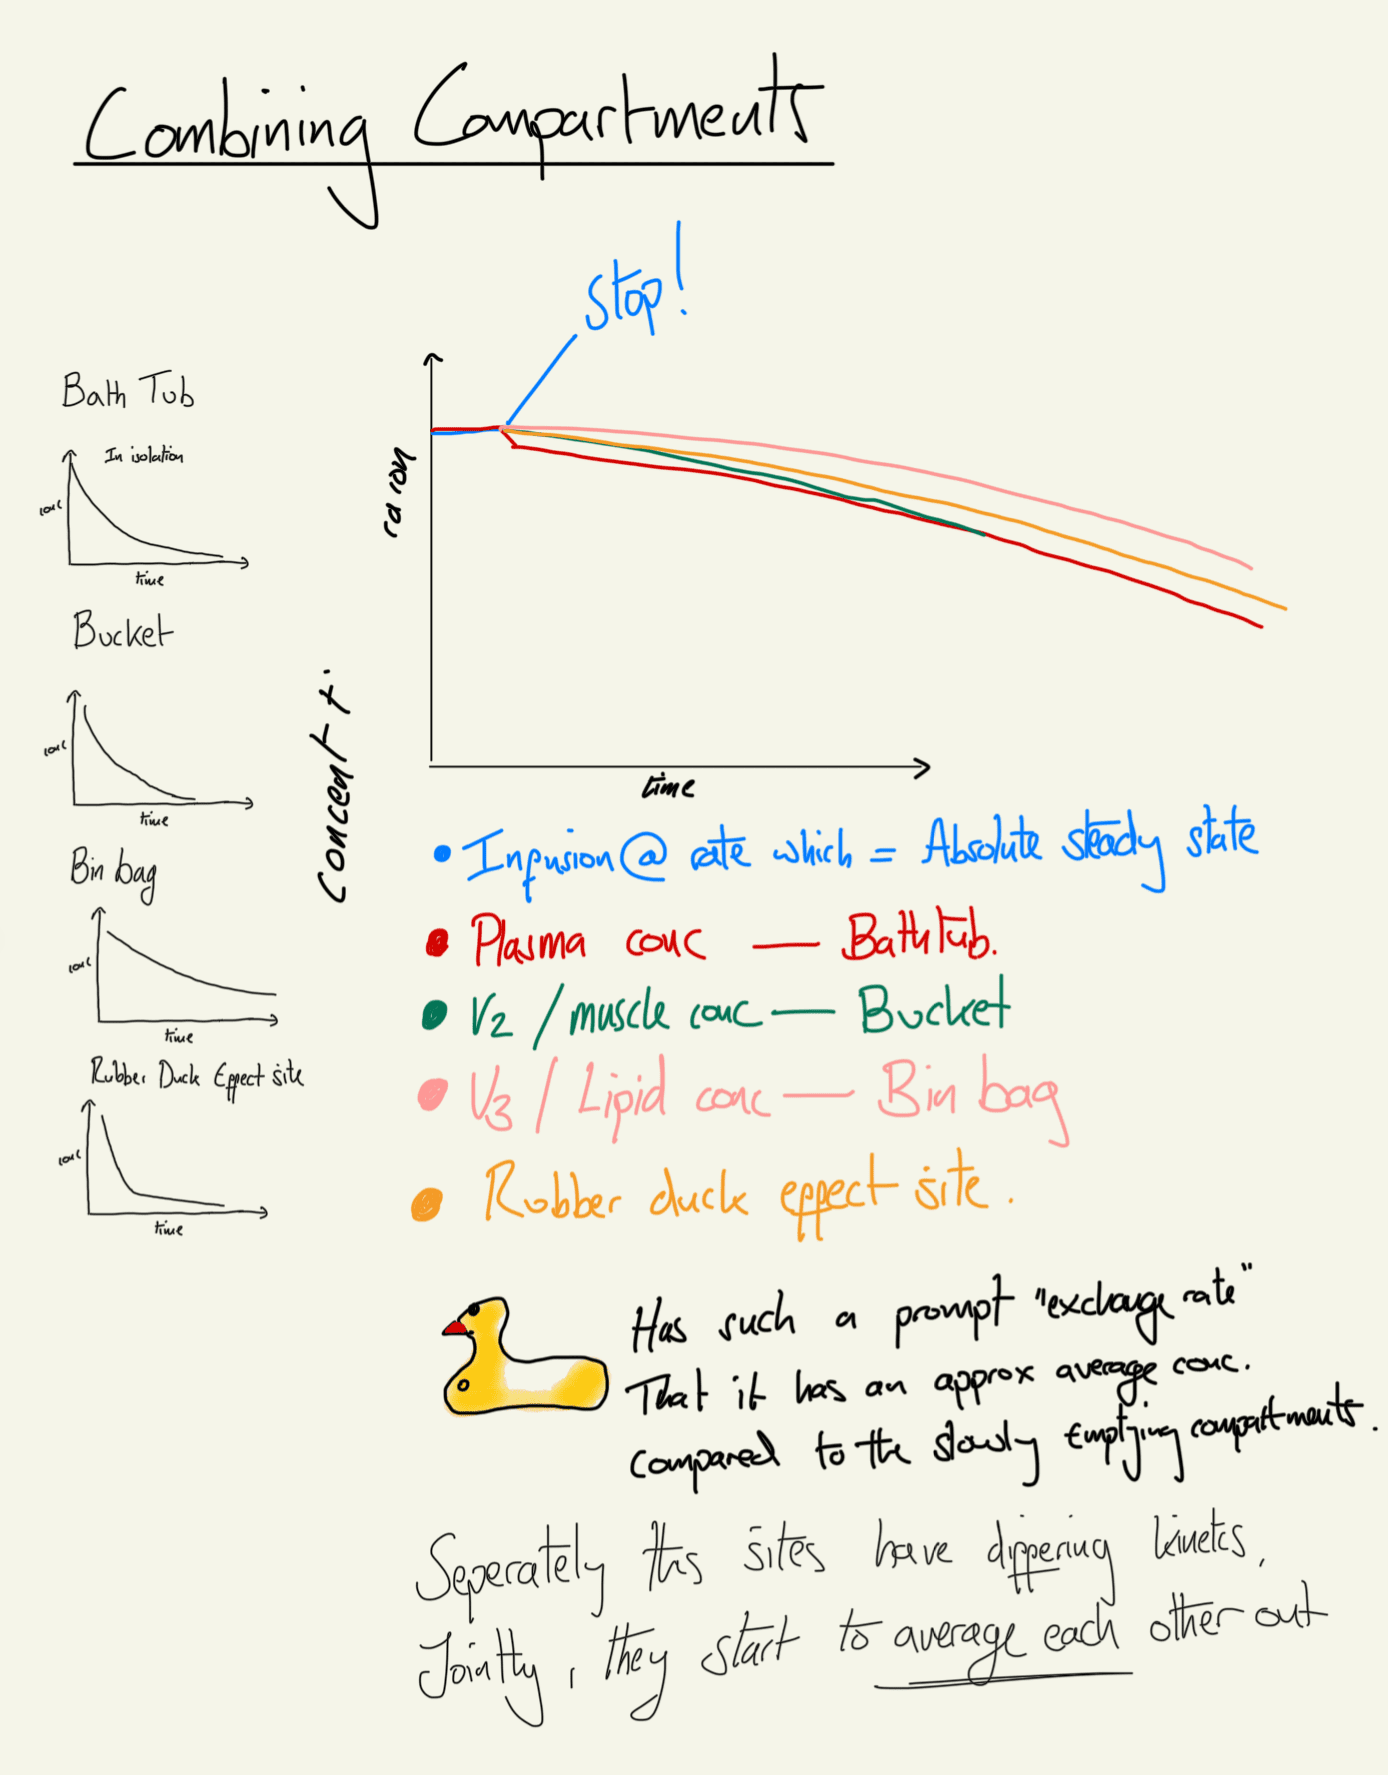 Combining Compartments
Stop!
Bath Tub
In isolation
conc
time
Bucket
conc
time
Bin bag
conc
time
Rubber Duck Effect site
conc
time
Concent
ra ion
time
• Infusion @ rate which = Absolute steady state
• Plasma conc — Bathtub.
• V2 / muscle conc — Bucket
• V3 / Lipid conc — Bin bag
• Rubber duck effect site.
Has such a prompt "exchange rate"
That it has an approx average conc.
compared to the slowly Emptying compartments.
Seperately this sites have differing kinetcs,
Jointly, they start to average each other out